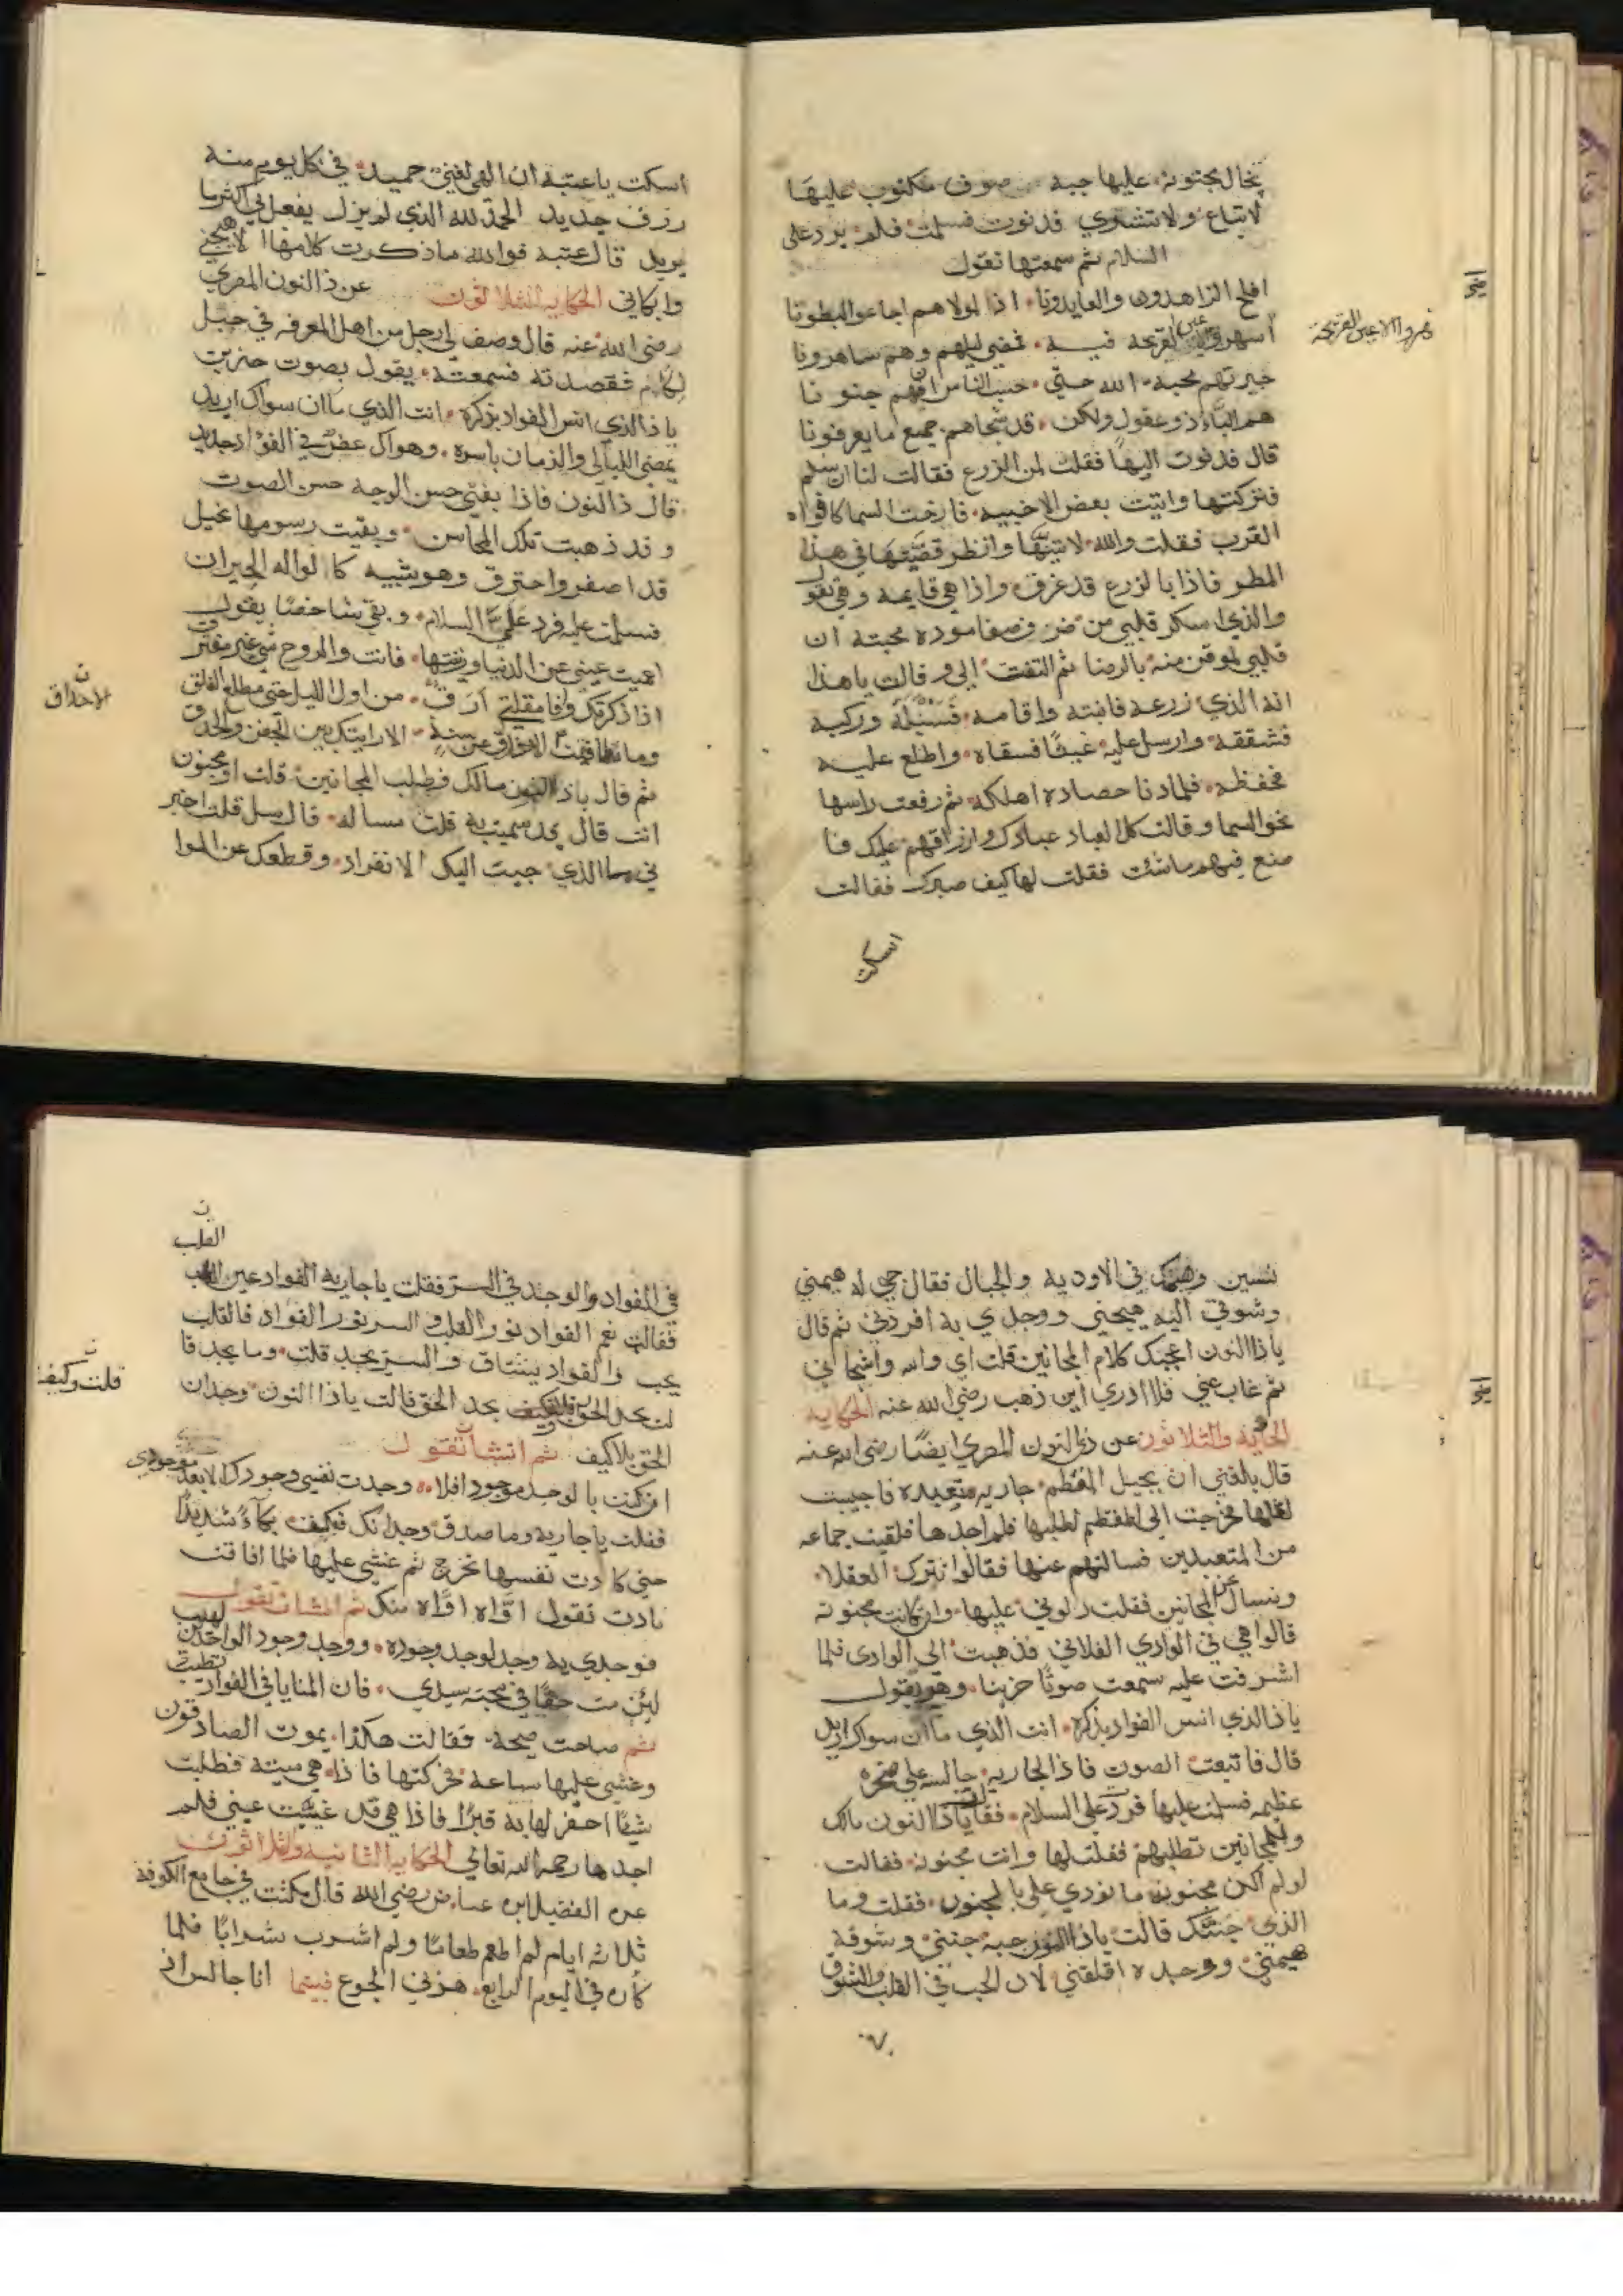 بحال مجنونه عليها جبة صوف مكتوب عليها
لاتباع ولا تشتري فدنوت فسلمت فلم يرد على
السلام ثم سمعتها تقول
افلح الزاهدون والعابدونا اذا لمولاهم اجاعوا البطونا
اسهروا الاعين القريحة فيه فمضى ليلهم وهم ساهرونا
نهروا الاعين القريحة
حيرتهم محبة الله حتى حسب الناس ان فيهم جنونا
هم البا ذو عقول ولكن قد شجاهم جميع ما يعرفونا
قال فدنوت اليها فقلت لمن الزرع فقالت لنا ان سلم
فتركتها واتيت بعض الاخبيه فارخت السما كافواه
القرب فقلت والله لاتينها وانظر قضيتها في هذا
المطر فاذا بالزرع قد غرق واذا هي قايمة وهي تقول
والذي اسكر قلبي من صفا موده محبته ان
قلبي لموقن منه بالرضا ثم التفتت الي وقالت ياهذا
انه الذي زرعه فانبته واقامه فسنبله وركبه
فشققه وارسل عليه غيثا فسقاه واطلع عليه
فحفظه فلما دنا حصاده اهلكه ثم رفعت راسها
نحو السما وقالت كل العباد عبادك وارزاقهم عليك فا
صنع فيهم ماشئت فقلت لها كيف صبرك فقالت
اسكت
اسكت ياعتبه ان الهي لغني حميد في كل يوم منه
رزق جديد الحمد لله الذي لم يزل يفعل بي اكثر مما
يريد قال عتبه فوالله ما ذكرت كلامها الا هيجني
وابكاني الحكاية الثلاثون عن ذا النون المصري
رضي الله عنه قال وصف لي رجل من اهل المعرفه في جبل
لكام فقصدته فسمعته يقول بصوت حزين
يا ذا الذي انس الفواد بذكره انت الذي ما ان سواك اريد
يمضي الليالي والزمان باسره وهواك غض في الفواد جديد
قال ذا النون فاذا بفتى حسن الوجه حسن الصوت
وقد ذهبت تلك المحاسن وبقيت رسومها نحيل
قد اصفر واحترق وهو يشبه كا لواله الحيران
فسلمت عليه فرد علي السلام وبقي شاخصا يقول
اعميت عيني عن الدنيا وزينتها فانت والروح شي غير مفترق
اذا ذكرتك وافا مقلتي ارق من اول الليل حتى مطلع الفلق
وما تطابقت الاحداق عن سنة الا رايتك بين الجفن والحدق
ن الاحداق
ثم قال ياذا النون مالك وطلب المجانين قلت اومجنون
انت قال قد سميت به قلت مساله قال سل قلت اخبر
ني ما الذي حبب اليك الانفراد وقطعك عن الموا
نسين وهيمك في الاوديه والجبال فقال حبي له هيمني
وشوقي اليه هيجني ووجدي به افردني ثم قال
ياذا النون اعجبك كلام المجانين قلت اي والله واشجاني
ثم غاب عني فلا ادري اين ذهب رضي الله عنه الحكايه
الحاديه والثلاثون عن ذي النون المصري ايضا رضي الله عنه
قال بلغني ان بجبل المقطم جاريه متعبده فاحببت
لقاها فخرجت الى المقطم لطلبها فلم اجدها فلقيت جماعه
من المتعبدين فسالتهم عنها فقالوا نترك العقلا
ونسال عن المجانين فقلت دلوني عليها وان كانت مجنونه
قالوا هي في الوادي الفلاني فذهبت الى الوادى فلما
اشرفت عليه سمعت صوتا حزينا وهو يقول
ياذا الذي انس الفواد بذكره انت الذي ما ان سواك اريد
قال فاتبعت الصوت فاذا لجاريه جالسه على صخره
عظيمه فسلمت عليها فردت علي السلام فقالت ياذا النون مالك
وللمجانين تطلبهم فقلت لها وانت مجنونه فقالت
لولم اكن مجنونه ما نودي علي با لجنون فقلت وما
الذي جننك قالت ياذا النون حبه جنني وشوقه
هيمني ووجده اقلقني لان الحب في القلب والشوق
ن
القلب
في الفواد والوجد في السر فقلت ياجاريه الفواد غير القلب
فقالت نعم الفواد نور القلب والسر نور الفواد فالقلب
يحب والفواد يشتاق والسر يجد قلت وما يجد قا
لت يجد الحق قلت وكيف يجد الحق قالت ياذا النون وجدان
ن قلت وكيف
الحق بلا كيف ثم انشات تقول
ان كنت بالوجد موجودا فلا وجدت نفسي وجودك الا بعد موجودى
فقلت ياجاريه وما صدق وجدانك فبكيت بكاء شديدا
حتى كادت نفسها تخرج ثم غشي عليها فلما افاقت
نادت تقول اواه اواه منك ثم انشات تقول
فوجدي به وجد لوجد وجوده ووجد وجود الواجدين لهيب
لئن مت حقا في محبة سيدي فان المنايا في الفواد تطيب
ثم صاحت صيحة فقالت هكذا يموت الصادقون
وغشي عليها ساعة فحركتها فاذا هي ميتة فطلبت
شيئا احفر لها به قبرا فاذا هي قد غيبت عيني فلم
اجدها رحمها الله تعالى الحكاية الثانيه والثلاثون
عن الفضيل ابن عياض رضي الله قال مكثت في جامع الكوفة
ثلاثه ايام لم اطعم طعاما ولم اشرب شرابا فلما
كان في اليوم الرابع هزني الجوع فبينما انا جالس اذ